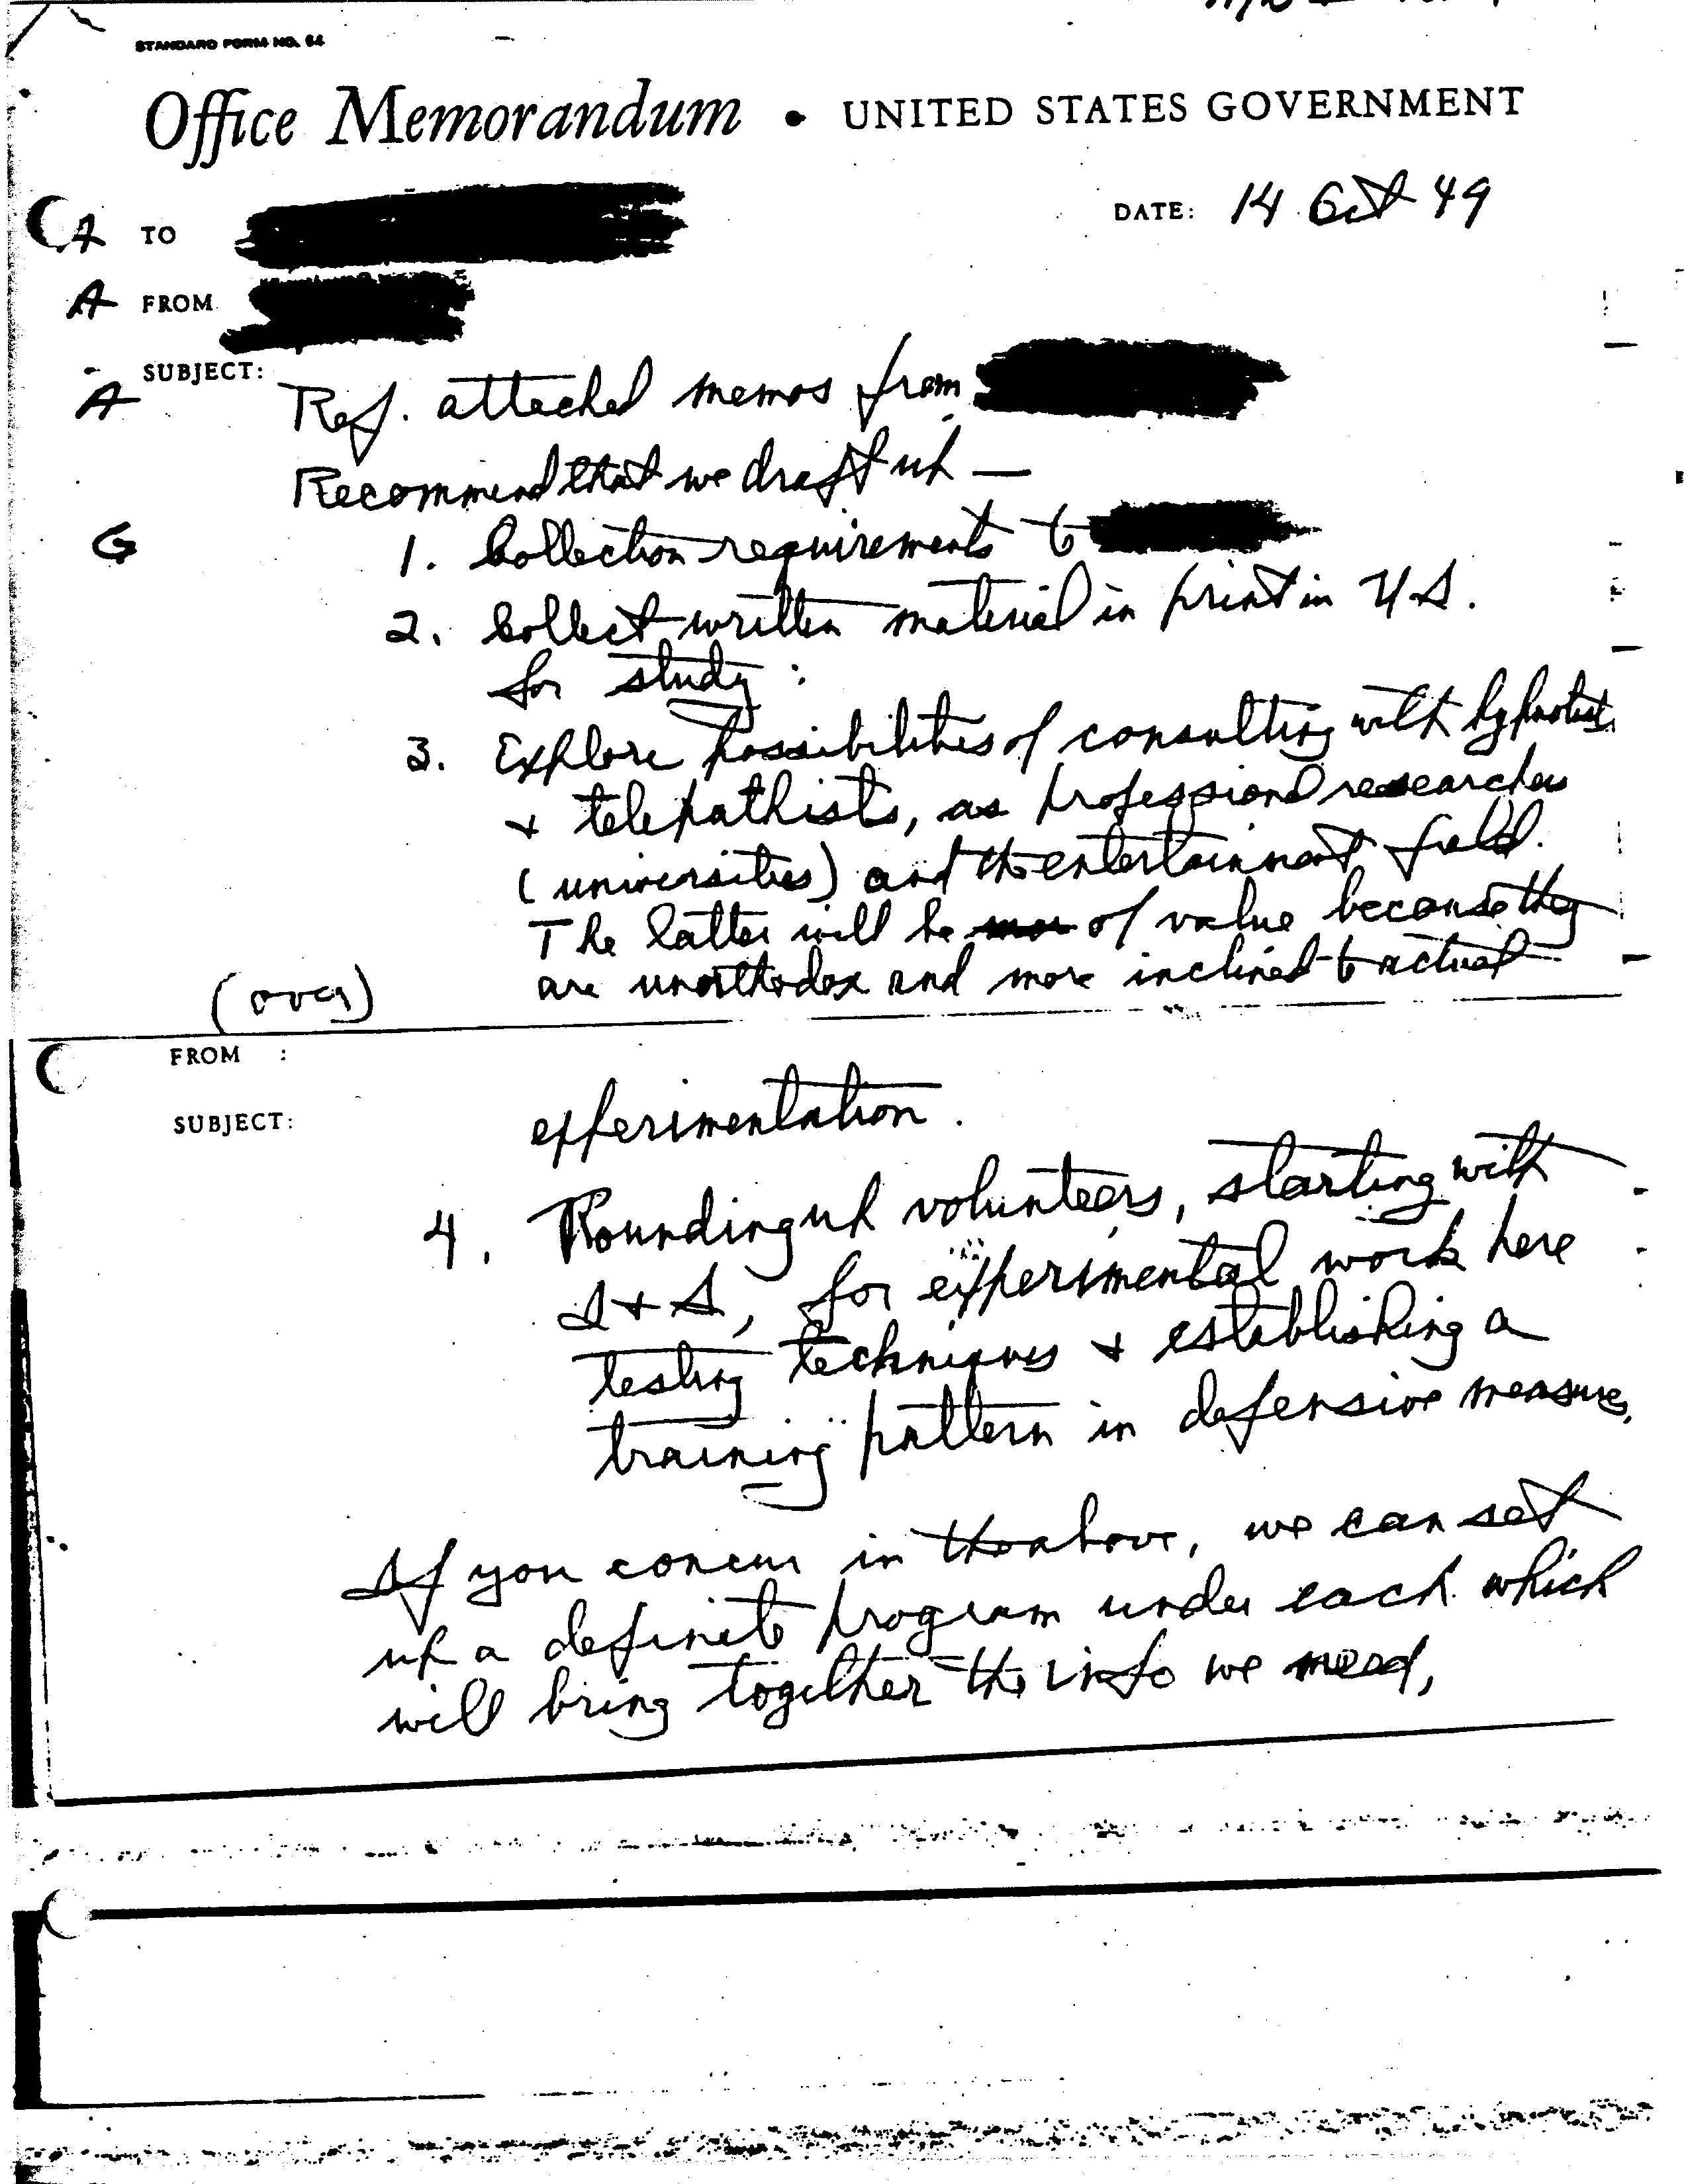 STANDARD FORM NO. 64
Office Memorandum • UNITED STATES GOVERNMENT
A TO
DATE: 14 Oct 49
A FROM
SUBJECT:
A
Ref. attached memos from
Recommend that we draft up —
G
1. Collection requirements to
2. Collect written material in print in U.S.
for study:
3. Explore possibilities of consulting with hypnotists
+ telepathists, as professional researchers
(universities) and the entertainment field.
The latter will be of value because they
are unorthodox and more inclined to actual
(over)
FROM :
SUBJECT:
experimentation.
4. Rounding up volunteers, starting with
I + S, for experimental work here
testing techniques + establishing a
training pattern in defensive measures.
If you concur in the above, we can set
up a definite program under each which
will bring together the info we need.